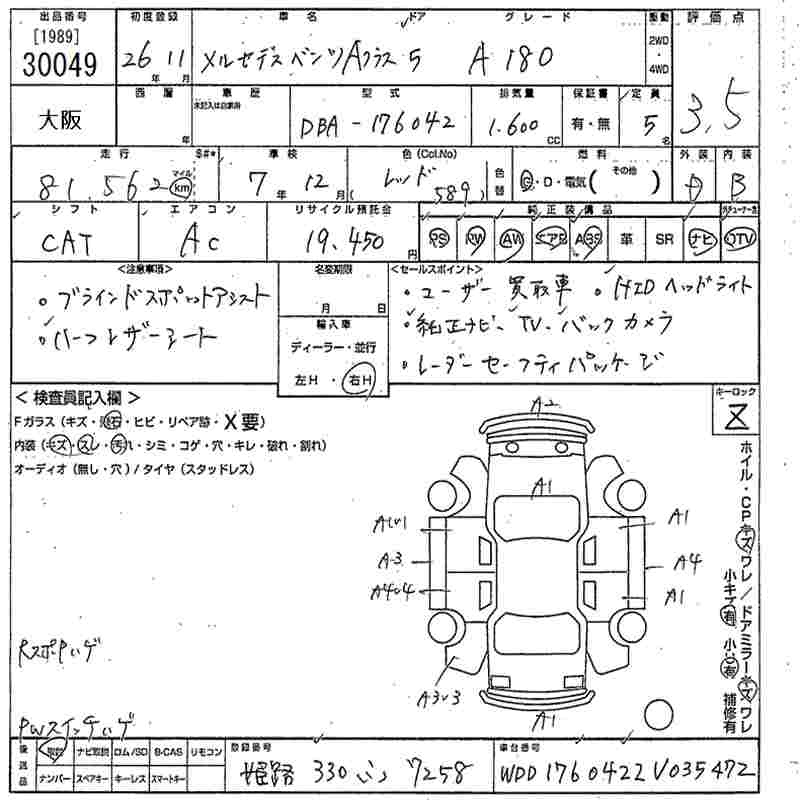 出品番号 初度登録 車名 ドア グレード 駆動 評価点
[1989]
30049 26年 11月 メルセデスベンツAクラス 5 A 180 2WD・4WD 3,5
大阪 西暦 年 車歴 未記入は自家用 型式 排気量 保証書 定員
DBA-176042 1.600 CC 有・無 5名
走行 S#* 車検 色(Col.No) 色替 燃料 外装 内装
81,562 マイル km 7年 12月 レッド (589) G・D・電気(その他) D B
シフト エアコン リサイクル預託金 純正装備品
CAT AC 19,450円 PS PW AW エアB ABS 革 SR ナビ TV
<注意事項> 名変期限 <セールスポイント>
・ブラインドスポットアシスト 月 日 ・ユーザー買取車 ・HIDヘッドライト
・ハーフレザーシート 輸入車 ・純正ナビ、TV、バックカメラ
ディーラー・並行 ・レーダーセーフティパッケージ
左H・右H
<検査員記入欄> キーロック
Fガラス(キズ・飛石・ヒビ・リペア跡・X要) Z
内装(キズ・スレ・汚れ・シミ・コゲ・穴・キレ・破れ・割れ)
オーディオ(無し・穴)/タイヤ(スタッドレス)
ホイル・CPキズワレ/ドアミラーキズワレ
小キズ有 小凹有 補修有
A2
A1
A1 A1
A3 A4
A4 A1
A3
A1
RスポPいゲ
PWスイッチいゲ
後送品 取説 ナビ取説 ロム/SD B-CAS リモコン 登録番号 車台番号
ナンバー スペアキー キーレス スマートキー 姫路 330 7258 WDD1760422V035472